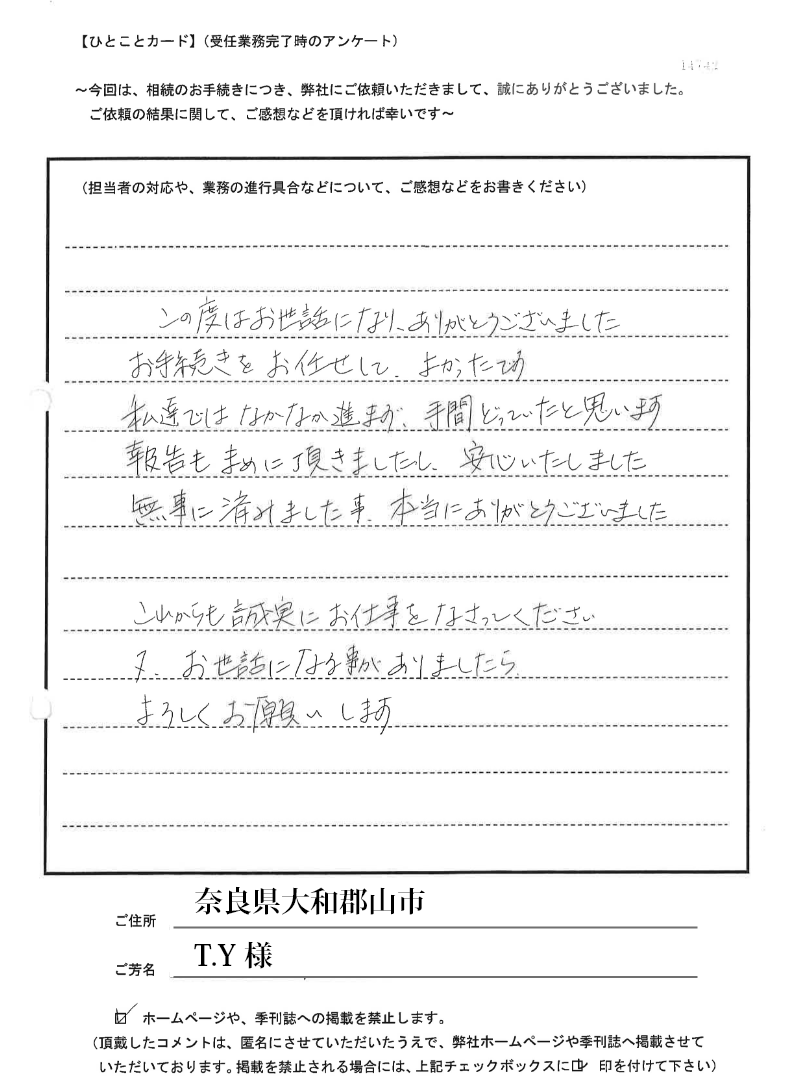 【ひとことカード】（受任業務完了時のアンケート）
14742
～今回は、相続のお手続きにつき、弊社にご依頼いただきまして、誠にありがとうございました。
ご依頼の結果に関して、ご感想などを頂ければ幸いです～
（担当者の対応や、業務の進行具合などについて、ご感想などをお書きください）
この度はお世話になり、ありがとうございました
お手続きを お任せして、よかったです
私達では なかなか進まず、手間どっていたと思います
報告も まめに頂きましたし、安心いたしました
無事に済みました事、本当にありがとうございました
これからも誠実に お仕事を なさってください
又、お世話になる事が ありましたら、
よろしくお願い します
奈良県大和郡山市
ご住所
T.Y 様
ご芳名
☑ ホームページや、季刊誌への掲載を禁止します。
（頂戴したコメントは、匿名にさせていただいたうえで、弊社ホームページや季刊誌へ掲載させて
いただいております。掲載を禁止される場合には、上記チェックボックスに☑ 印を付けて下さい）